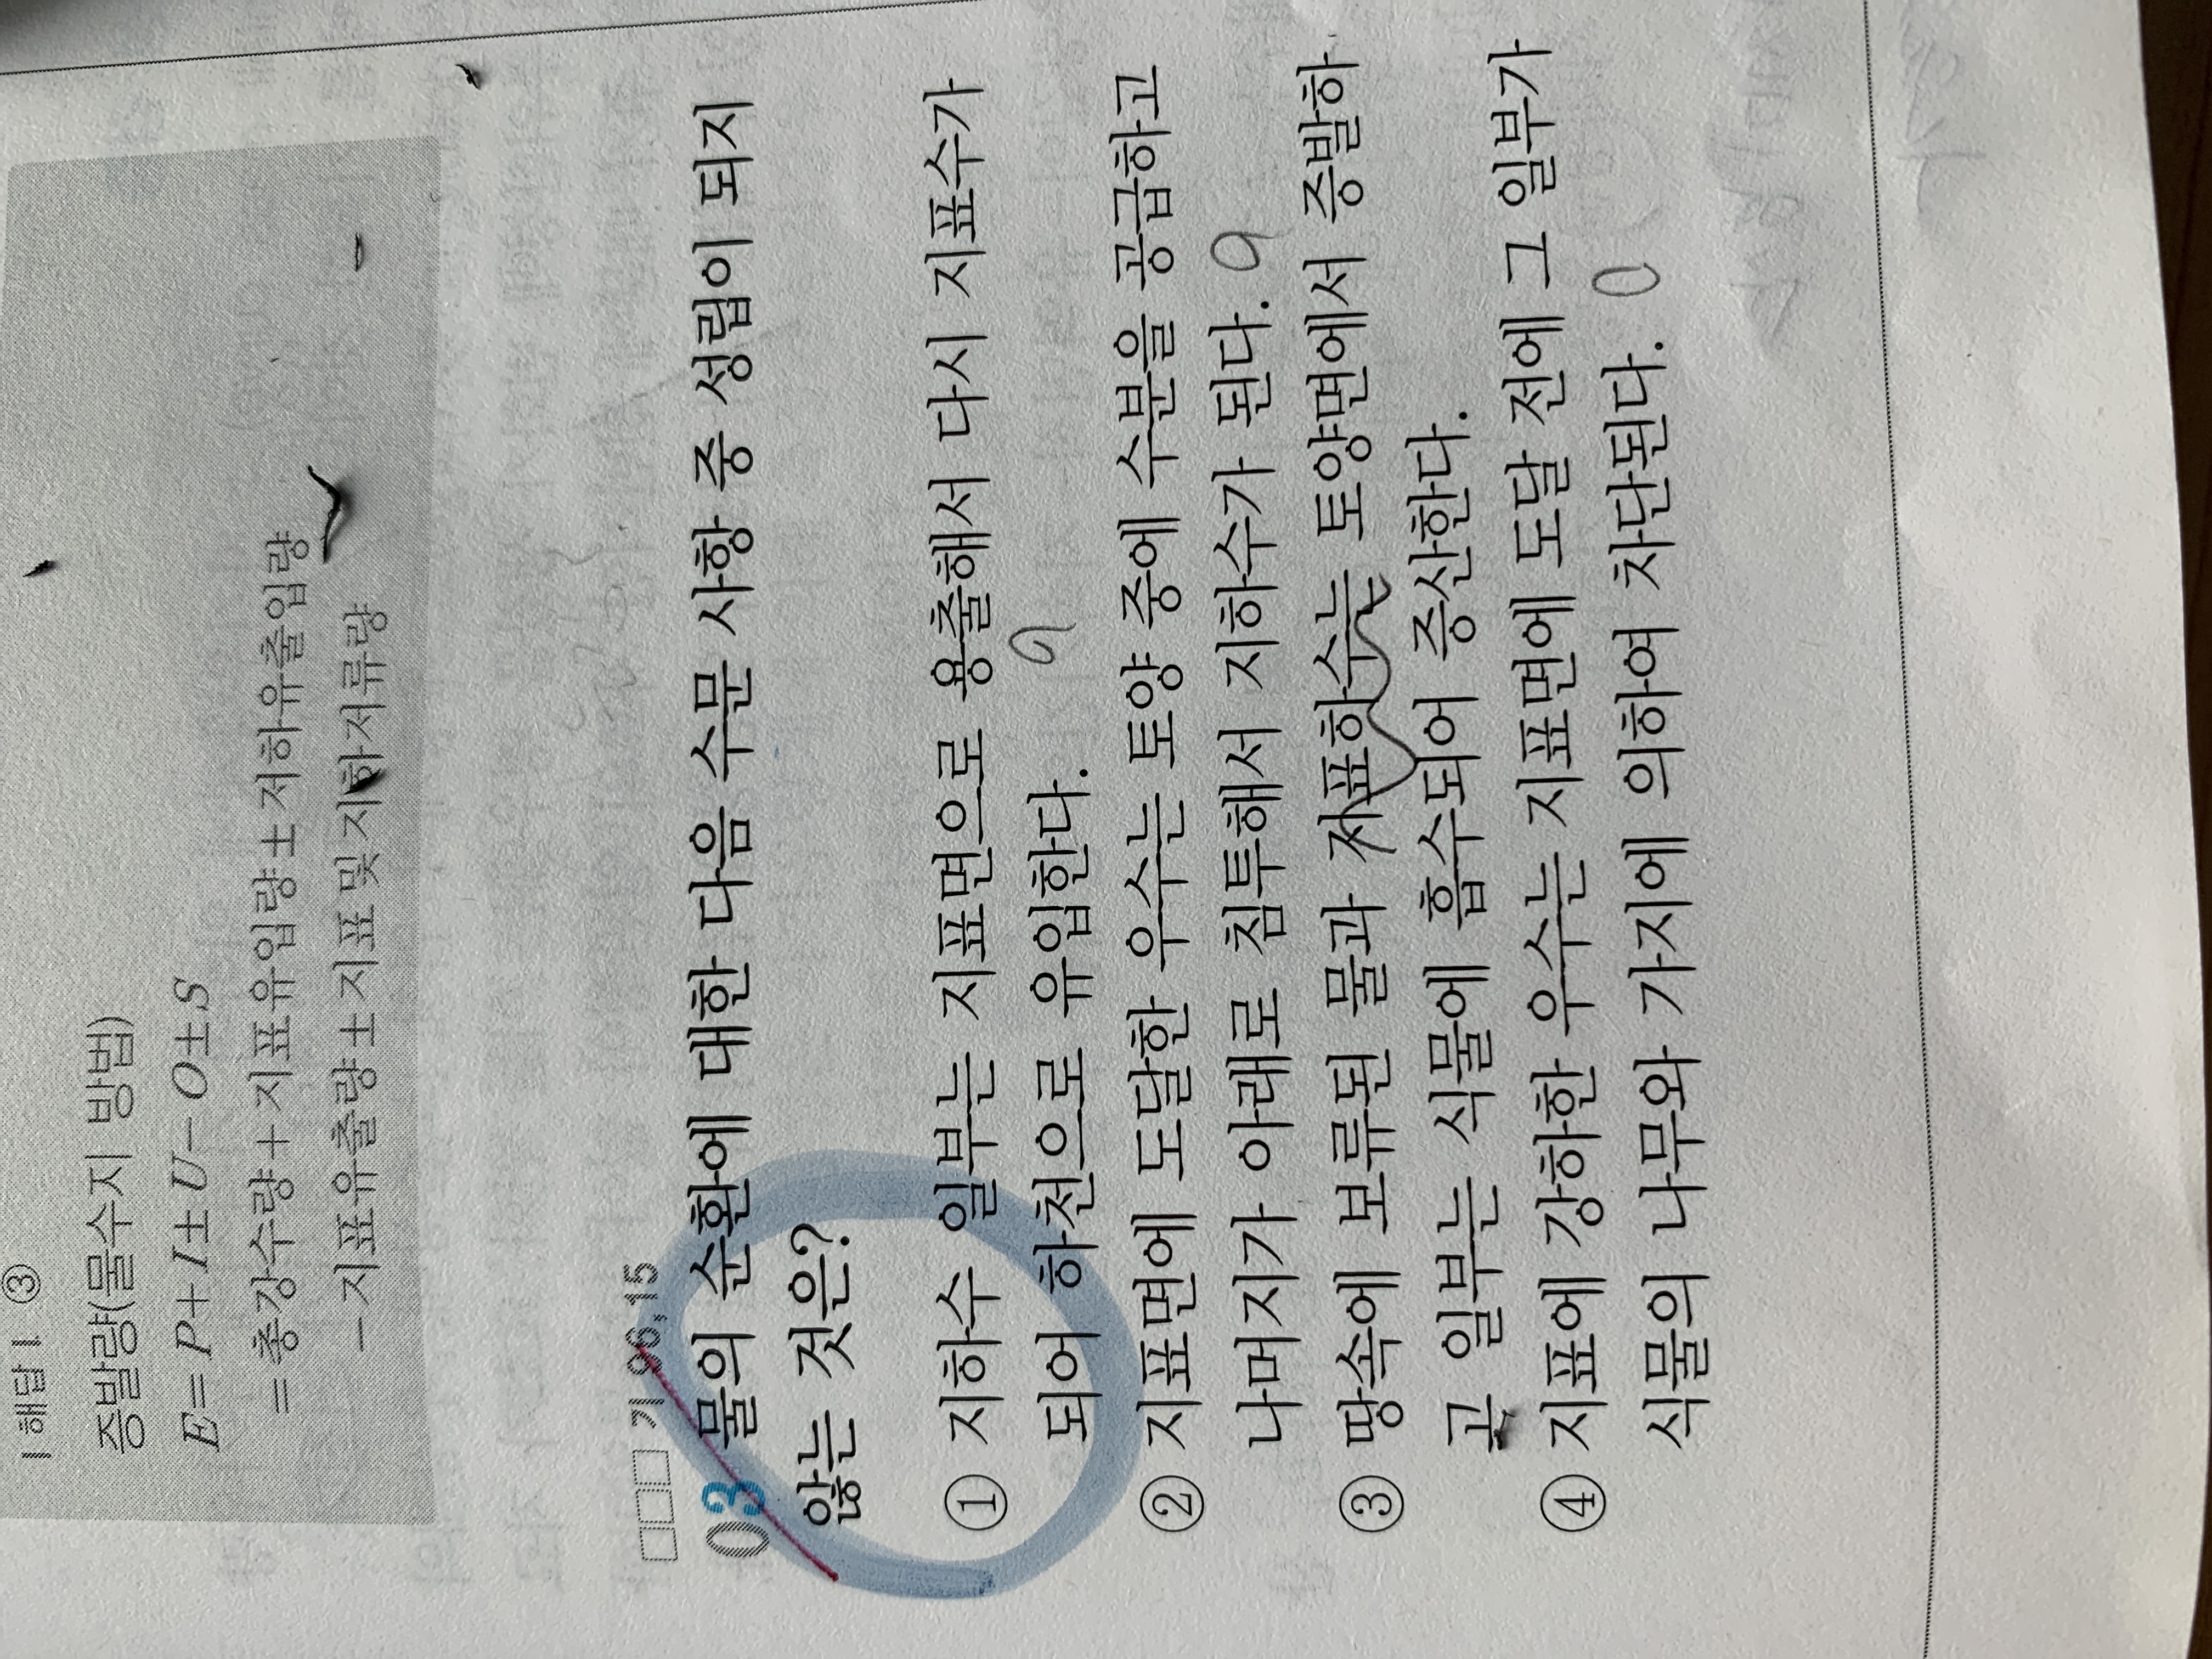 | 해답 | ③
증발량(물수지 방법)
E = P + I ± U - O ± S
= 총강수량 + 지표유입량 ± 지하유출입량
- 지표유출량 ± 지표 및 지하저류량
기 96, 15
03 물의 순환에 대한 다음 수문 사항 중 성립이 되지
않는 것은?
① 지하수 일부는 지표면으로 용출해서 다시 지표수가
되어 하천으로 유입한다.
② 지표면에 도달한 우수는 토양 중에 수분을 공급하고
나머지가 아래로 침투해서 지하수가 된다.
③ 땅속에 보류된 물과 지표하수는 토양면에서 증발하
고 일부는 식물에 흡수되어 증산한다.
④ 지표에 강하한 우수는 지표면에 도달 전에 그 일부가
식물의 나무와 가지에 의하여 차단된다. 0